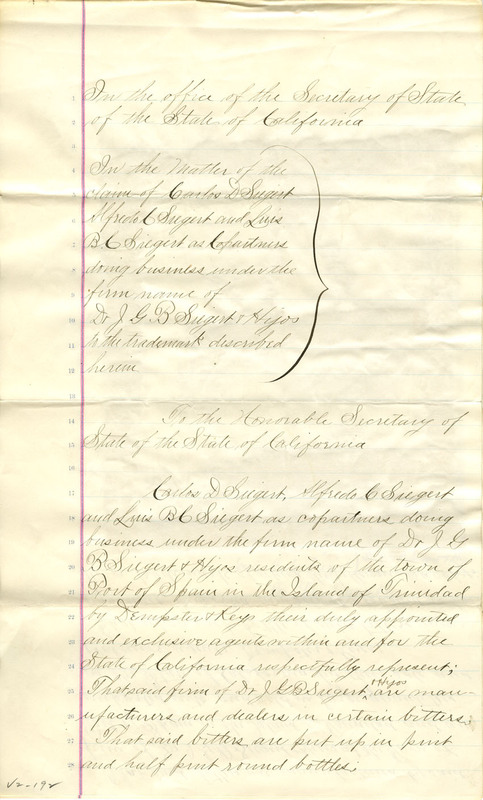 In the office of the Secretary of State
of the State of California
In the Matter of the
claim of Carlos D Siegert
Alfredo C Siegert and Luis
B C Siegert as Copartners
doing business under the
firm name of
Dr J G B Siegert & Hijos
to the trademark described
herein
To the Honorable Secretary of
State of the State of California
Carlos D Siegert, Alfredo C Siegert
and Luis B C Siegert as copartners doing
business under the firm name of Dr J G
B Siegert & Hijos residents of the town of
Port of Spain in the Island of Trinidad
by Dempster & Keys their duly appointed
and exclusive agents within and for the
State of California respectfully represent;
That said firm of Dr J G B Siegert & Hijos are man-
ufacturers and dealers in certain bitters;
That said bitters are put up in pint
and half pint round bottles;
V2-192